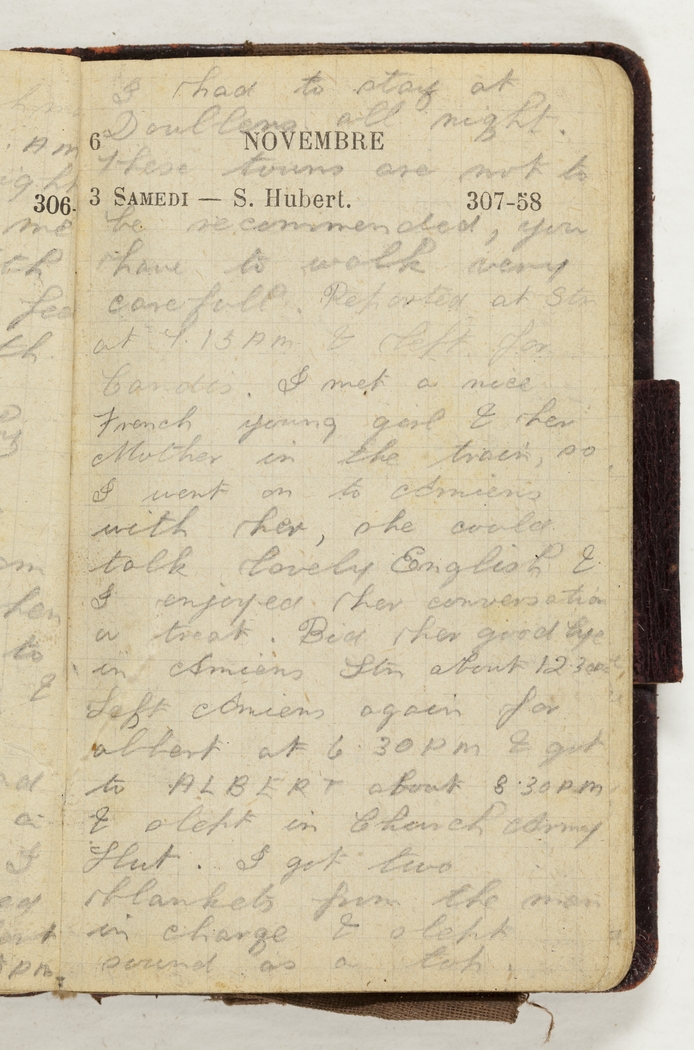 I had to stay at
Doullens all night.
6 NOVEMBRE
These towns are not to
3 SAMEDI — S. Hubert. 307-58
be recommended, you
have to walk very
carefull. Reported at Stn
at 9.15 AM & left for
Candas. I met a nice
French young girl & her
Mother in the train, so
I went on to Amiens
with her, she could
talk lovely English &
I enjoyed her conversation
a treat. Bid her good bye
in Amiens Stn about 12 30
Left Amiens again for
albert at 6.30 PM & got
to ALBERT about 8.30 PM
& slept in Church Army
Hut. I got two
blankets from the man
in charge & slept
sound as a top.
306-